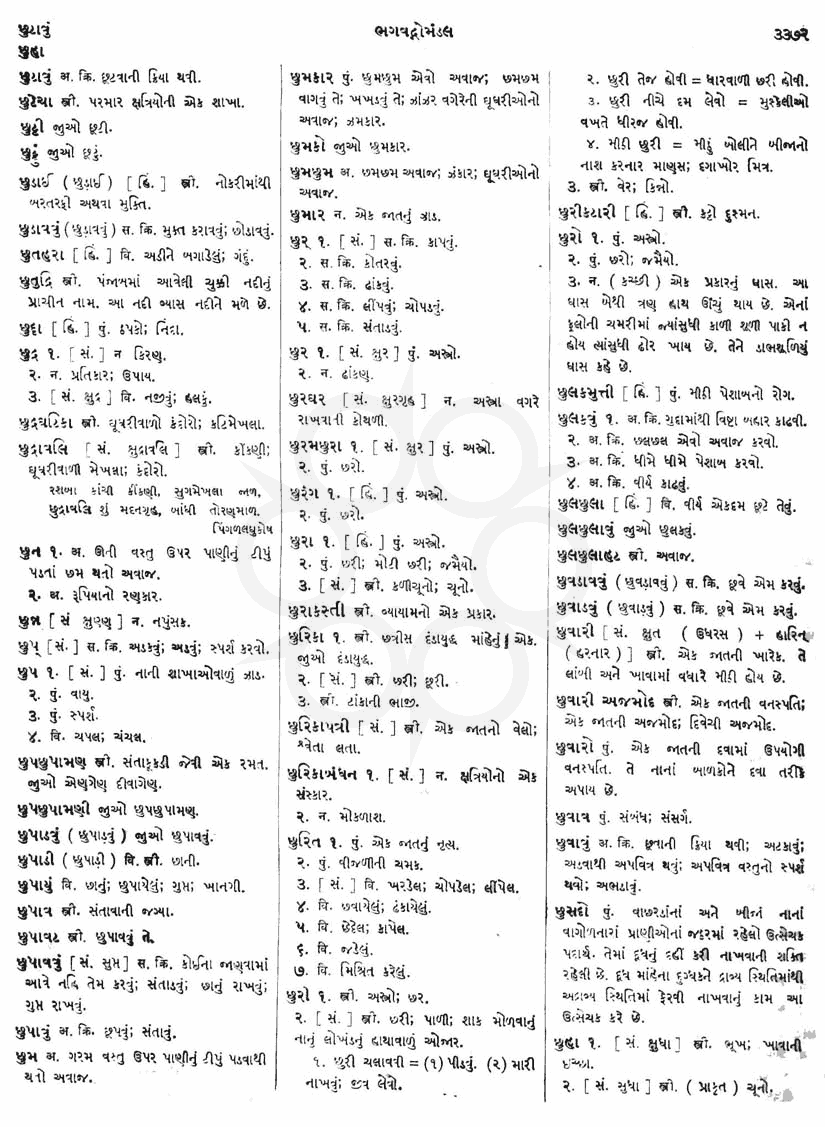 છુટાવું
છુહા
ભગવદ્ગોમંડલ
૩૩૭૨
છુટાવું અ. ક્રિ. છૂટવાની ક્રિયા થવી.
છુટેચા સ્ત્રી. પરમાર ક્ષત્રિયોની એક શાખા.
છુટ્ટી જુઓ છૂટી.
છુટ્ટું જુઓ છૂટું.
છુડાઈ ( છુડ઼ાઈ ) [ હિં. ] સ્ત્રી. નોકરીમાંથી
બરતરફી અથવા મુક્તિ.
છુડાવવું (છુડ઼ાવવું ) સ. ક્રિ. મુક્ત કરાવવું; છોડાવવું.
છુતહરા [ હિં. ] વિ. અડીને બગાડેલું; ગંદું.
છુતુદ્રિ સ્ત્રી. પંજાબમાં આવેલી ચુક્કી નદીનું
પ્રાચીન નામ. આ નદી બ્યાસ નદીને મળે છે.
છુદ્દા [ હિં. ] પું. ઠપકો; નિંદા.
છુદ્ર ૧. [ સં. ] ન કિરણ.
૨. ન. પ્રતિકાર; ઉપાય.
૩. [ સં. ક્ષુદ્ર ] વિ. નજીવું; હલકું.
છુદ્રઘંટિકા સ્ત્રી. ઘૂઘરીવાળો કંદોરો; કટિમેખલા.
છુદ્રાવલિ [ સં. ક્ષુદ્રાવલિ ] સ્ત્રી. કીંકણી;
ઘૂઘરીવાળી મેખળા; કંદોરો.
રશબા કાંચી કીંકણી, સુગમેખલા જાળ,
છુદ્રાવલિ શું મદનગૃહ, બાંધી તોરણમાળ.
પિંગળલઘુકોષ
છુન ૧. અ. ઊની વસ્તુ ઉપર પાણીનું ટીપું
પડતાં છમ થતો અવાજ.
૨. અ. રૂપિયાનો રણકાર.
છુન્ન [ સં ક્ષુણ્ણ ] ન. નપુંસક.
છુપ્ [સં. ] સ. ક્રિ. અડકવું; અડવું; સ્પર્શ કરવો.
છુપ ૧. [ સં. ] પું. નાની શાખાઓવાળું ઝાડ.
૨. પું. વાયુ.
૩. પું. સ્પર્શ.
૪. વિ. ચપલ; ચંચલ.
છુપછુપામણ સ્ત્રી. સંતાકૂકડી જેવી એક રમત.
જુઓ એણગેણ દીવાગેણ.
છુપછુપામણી જુઓ છુપછુપામણ.
છુપાડવું ( છુપાડ઼વું ) જુઓ છુપાવવું.
છુપાડી ( છુપાડ઼ી ) વિ. સ્ત્રી. છાની.
છુપાયું વિ. છાનું; છુપાયેલું; ગુપ્ત; ખાનગી.
છુપાવ સ્ત્રી. સંતાવાની જગ્યા.
છુપાવટ સ્ત્રી. છુપાવવું તે.
છુપાવવું [ સં. સુપ્ત ] સ. ક્રિ. કોઈના જાણવામાં
આવે નહિ તેમ કરવું; સંતાડવું; છાનું રાખવું;
ગુપ્ત રાખવું.
છુપાવું અ. ક્રિ. છૂપવું; સંતાવું.
છુમ અ. ગરમ વસ્તુ ઉપર પાણીનું ટીપું પડવાથી
થતો અવાજ.
છુમકાર પું. છુમછુમ એવો અવાજ; છમછમ
વાગવું તે; ખખડવું તે; ઝાંઝર વગેરેની ઘૂઘરીઓનો
અવાજ; ઝમકાર.
છુમકો જુઓ છુમકાર.
છુમછુમ અ. છમછમ અવાજ; ઝંકાર; ઘૂઘરીઓનો
અવાજ.
છુમાર ન. એક જાતનું ઝાડ.
છુર્ ૧. [ સં. ] સ. ક્રિ. કાપવું.
૨. સ. ક્રિ. કોતરવું.
૩. સ. ક્રિ. ઢાંકવું.
૪. સ. ક્રિ. લીંપવું; ચોપડવું.
૫. સ. ક્રિ. સંતાડવું.
છુર ૧. [ સં. ક્ષુર ] પું. અસ્ત્રો.
૨. ન. ઢાંકણ.
છુરઘર [ સં. ક્ષુરગૃહ ] ન. અસ્ત્રા વગરે
રાખવાની કોથળી.
છુરમછુરા ૧. [ સં. ક્ષુર ] પું. અસ્ત્રો.
૨. પું. છરો.
છુરંગ ૧. [ હિં. ] પું. અસ્ત્રો.
૨. પું. છરો.
છુરા ૧. [ હિં. ] પું. અસ્ત્રો.
૨. પું. છરી; મોટી છરી; જમૈયો.
૩. [ સં. ] સ્ત્રી. કળીચૂનો; ચૂનો.
છુરાકસ્તી સ્ત્રી. વ્યાયામનો એક પ્રકાર.
છુરિકા ૧. સ્ત્રી. છત્રીસ દંડાયુદ્ધ માંહેનું એક.
જુઓ દંડાયુદ્ધ.
૨. [ સં. ] સ્ત્રી. છરી; છૂરી.
૩. સ્ત્રી. ટાંકાની ભાજી.
છુરિકાપત્રી [ સં. ] સ્ત્રી. એક જાતનો વેલો;
શ્વેતા લતા.
છુરિકાબંધન ૧. [ સં. ] ન. ક્ષત્રિયોનો એક
સંસ્કાર.
૨. ન. મોકળાશ.
છુરિત ૧. પું. એક જાતનું નૃત્ય.
૨. પું. વીજળીની ચમક.
૩. [ સં. ] વિ. ખરડેલ; ચોપડેલ; લીંપેલ.
૪. વિ. છવાયેલું; ઢંકાયેલું.
૫. વિ. છેદેલ; કાપેલ.
૬. વિ. જડેલું.
૭. વિ. મિશ્રિત કરેલું.
છુરી ૧. સ્ત્રી. અસ્ત્રો; છર.
૨. [ સં. ] સ્ત્રી. છરી; પાળી; શાક મોળવાનું
નાનું લોખંડનું હાથાવાળું ઓજાર.
૧. છુરી ચલાવવી = (૧) પીડવું. (૨) મારી
નાખવું; જીવ લેવો.
૨. છુરી તેજ હોવી = ધારવાળી છરી હોવી.
૩. છુરી નીચે દમ લેવો = મુશ્કેલીઓ
વખતે ધીરજ હોવી.
૪. મીઠી છુરી = મીઠું બોલીને બીજાનો
નાશ કરનાર માણસ; દગાખોર મિત્ર.
૩. સ્ત્રી. વેર; કિન્નો.
છુરીકટારી [ હિં. ] સ્ત્રી. કટ્ટો દુશ્મન.
છુરો ૧. પું. અસ્ત્રો.
૨. પું. છરો; જમૈયો.
૩. ન. ( કચ્છી ) એક પ્રકારનું ઘાસ. આ
ઘાસ બેથી ત્રણ હાથ ઊંચું થાય છે. એનાં
ફૂલોની ચમરીમાં જ્યાંસુધી કાળી શૂળી પાકી ન
હોય ત્યાંસુધી ઢોર ખાય છે. તેને ડાભશૂળિયું
ઘાસ કહે છે.
છુલકમુત્તી [ હિં. ] પું. મીઠી પેશાબનો રોગ.
છુલકવું ૧. અ. ક્રિ. ગુદામાંથી વિષ્ટા બહાર કાઢવી.
૨. અ. ક્રિ. છલછલ એવો અવાજ કરવો.
૩. અ. ક્રિ. ધીમે ધીમે પેશાબ કરવો.
૪. અ. ક્રિ. વીર્ય કાઢવું.
છુલછુલા [ હિં. ] વિ. વીર્ય એકદમ છૂટે તેવું.
છુલછુલાવું જુઓ છુલકવું.
છુલછુલાહટ સ્ત્રી. અવાજ.
છુવડાવવું ( છુવડ઼ાવવું ) સ. ક્રિ. છૂવે એમ કરવું.
છુવાડવું ( છુવાડ઼વું ) સ. ક્રિ. છૂવે એમ કરવું.
છુવારી [ સં. ક્ષુત ( ઉધરસ ) + હારિન્
( હરનાર ) ] સ્ત્રી. એક જાતની ખારેક. તે
લાંબી અને ખાવામાં વધારે મીઠી હોય છે.
છુવારી અજમોદ સ્ત્રી. એક જાતની વનસ્પતિ;
એક જાતની અજમોદ; દિવેચી અજમોદ.
છુવારો પું. એક જાતની દવામાં ઉપયોગી
વનસ્પતિ. તે નાનાં બાળકોને દવા તરીકે
અપાય છે.
છુવાવ પું. સંબંધ; સંસર્ગ.
છુવાવું અ. ક્રિ. છૂવાની ક્રિયા થવી; અટકાવું;
અડવાથી અપવિત્ર થવું; અપવિત્ર વસ્તુનો સ્પર્શ
થવો; અભડાવું.
છુસદો પું. વાછરડાંનાં અને બીજાં નાનાં
વાગોળનારાં પ્રાણીઓનાં જઠરમાં રહેલો ઉત્સેચક
પદાર્થ. તેમાં દૂધનું દહીં કરી નાખવાની શક્તિ
રહેલી છે. દૂધ માંહેના દુગ્ધકને દ્રાવ્ય સ્થિતિમાંથી
અદ્રાવ્ય સ્થિતિમાં ફેરવી નાખવાનું કામ આ
ઉત્સેચક કરે છે.
છુહા ૧. [ સં. ક્ષુધા ] સ્ત્રી. ભૂખ; ખાવાની
ઇચ્છા.
૨. [ સં. સુધા ] સ્ત્રી. ( પ્રાકૃત ) ચૂનો.